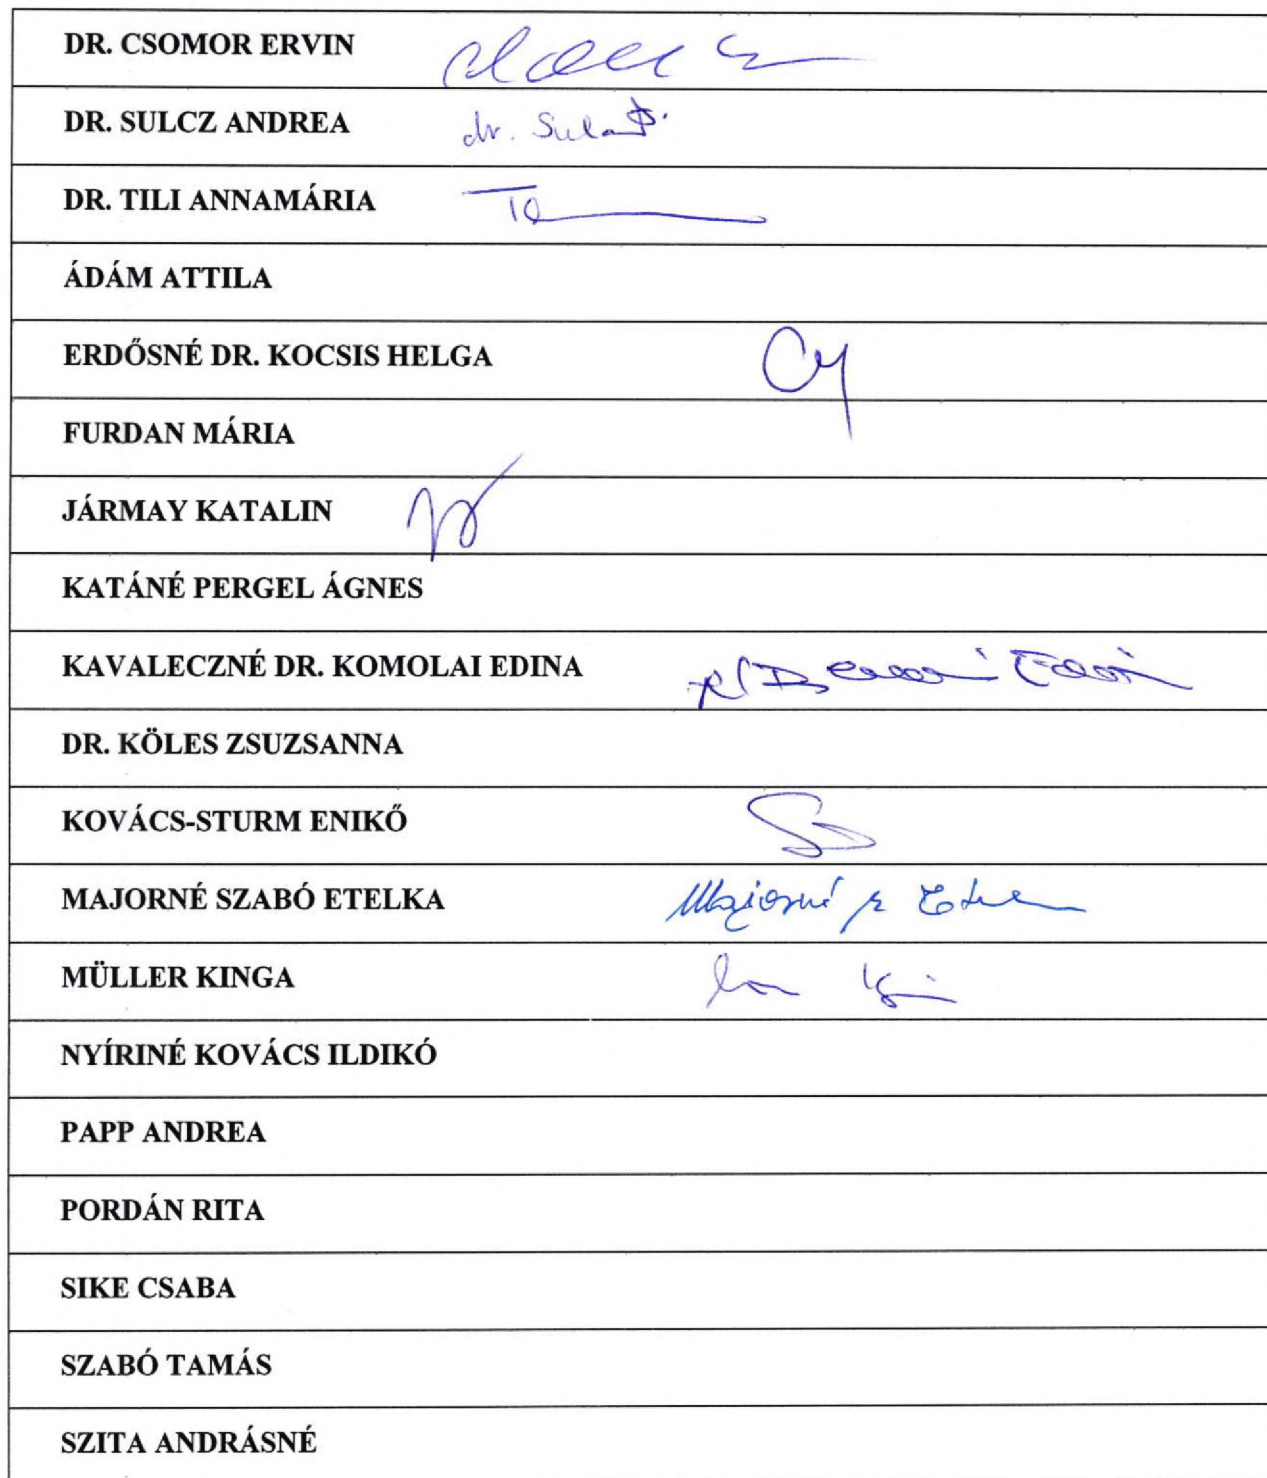 DR. CSOMOR ERVIN
DR. SULCZ ANDREA dr. Sulcz
DR. TILI ANNAMÁRIA
ÁDÁM ATTILA
ERDŐSNÉ DR. KOCSIS HELGA
FURDAN MÁRIA
JÁRMAY KATALIN
KATÁNÉ PERGEL ÁGNES
KAVALECZNÉ DR. KOMOLAI EDINA
DR. KÖLES ZSUZSANNA
KOVÁCS-STURM ENIKŐ
MAJORNÉ SZABÓ ETELKA Majorné
MÜLLER KINGA
NYÍRINÉ KOVÁCS ILDIKÓ
PAPP ANDREA
PORDÁN RITA
SIKE CSABA
SZABÓ TAMÁS
SZITA ANDRÁSNÉ